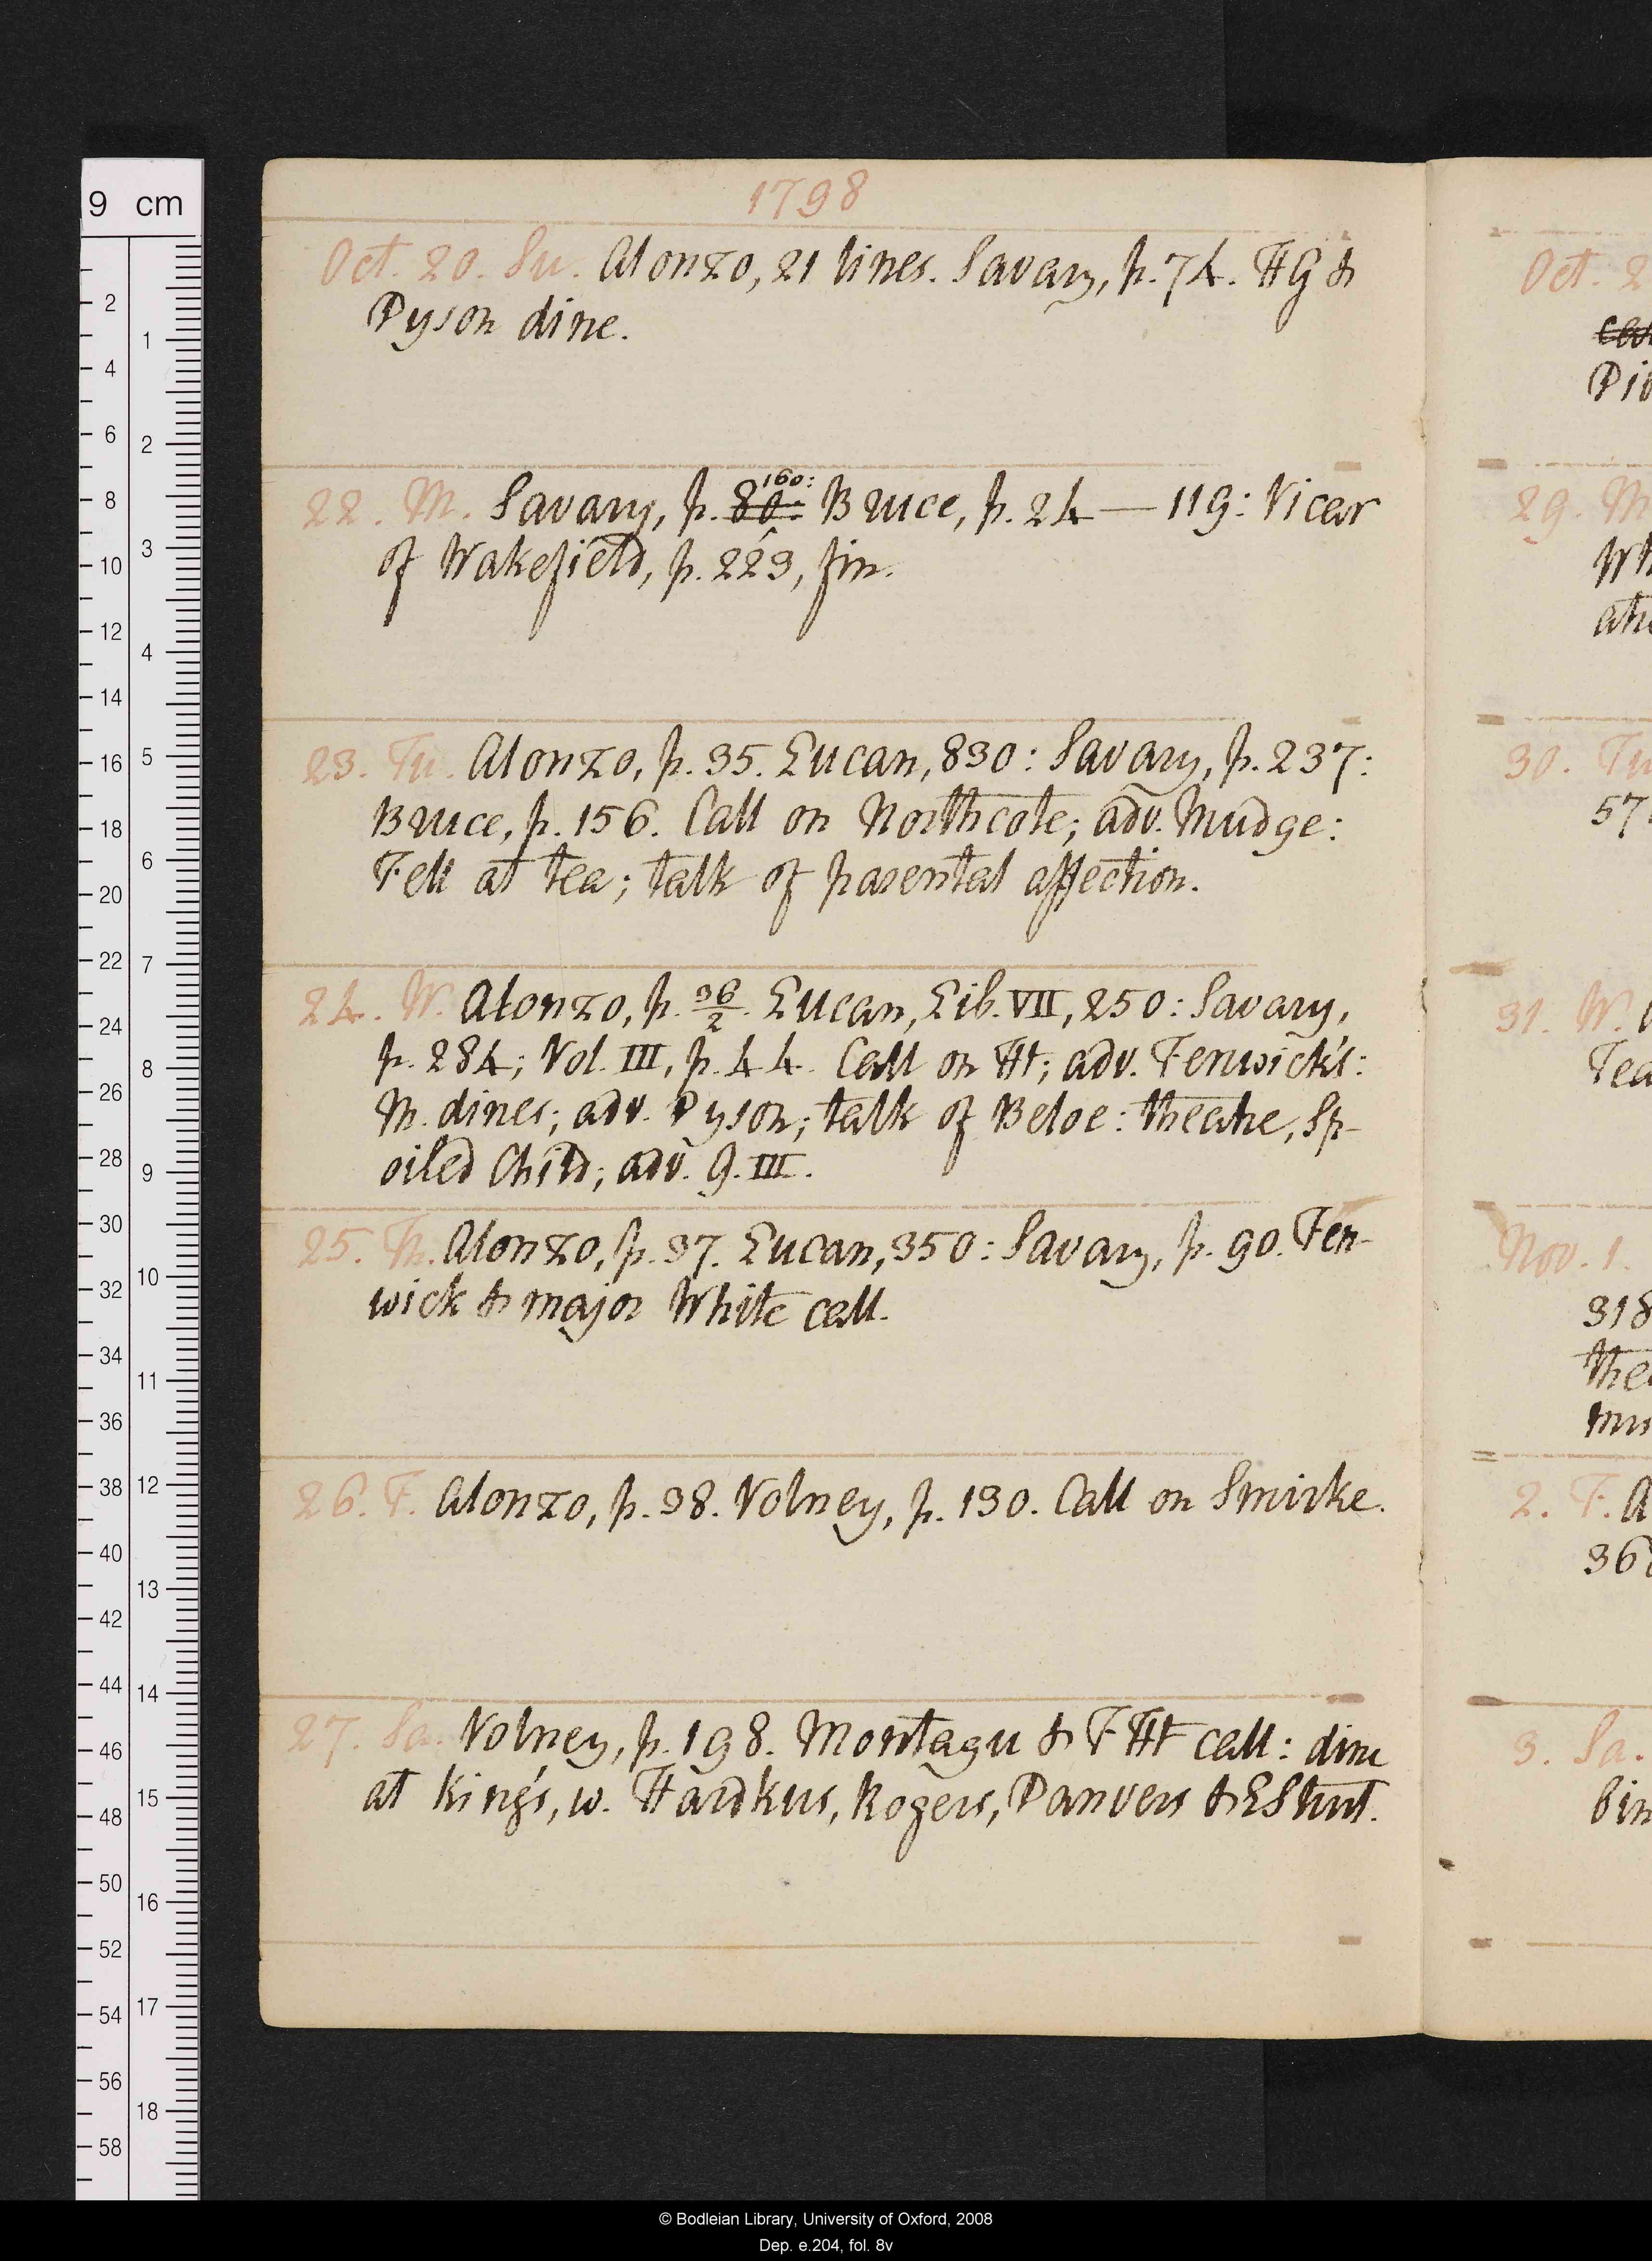 1798
Oct. 20. Su. Alonzo, 21 lines. Savary, p. 74. HG &
Dyson dine.
22. M. Savary, p. 80. 160: Bruce, p. 24 — 119: Vicar
of Wakefield, p. 223, fin.
23. Tu. Alonzo, p. 35. Lucan, 830: Savary, p. 237:
Bruce, p. 156. Call on Northcote; adv. Mudge:
Fell at tea; talk of parental affection.
24. W. Alonzo, p. 36/2. Lucan, Lib. VII, 250: Savary,
p. 284; Vol. III, p. 44. Call on Ht; adv. Fenwick's:
M. dines; adv. Dyson; talk of Beloe: theatre, Sp-
oiled Child; adv. G. III.
25. Th. Alonzo, p. 37. Lucan, 350: Savary, p. 90. Fen-
wick & major White call.
26. F. Alonzo, p. 38. Volney, p. 130. Call on Smirke.
27. Sa. Volney, p. 198. Montagu & FHt call: dine
at King's, w. Hardkus, Rogers, Danvers & EStrut.
Oct. 2
Pi
29. M
Wh
30. Tu
57
31. W.
Tea
Nov. 1.
318
the
mus
2. F. A
36
3. Sa.
bin
9 cm
2
4
6
8
10
12
14
16
18
20
22
24
26
28
30
32
34
36
38
40
42
44
46
48
50
52
54
56
58
1
2
3
4
5
6
7
8
9
10
11
12
13
14
15
16
17
18
© Bodleian Library, University of Oxford, 2008
Dep. e.204, fol. 8v